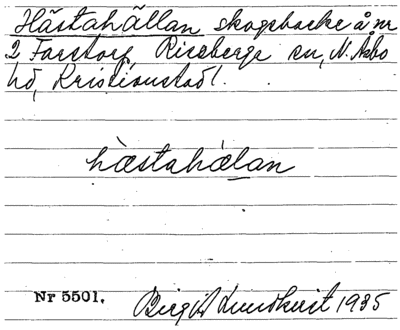 Hästahällan skogsbacke å nr
2 Farstorp Riseberga sn, N. Åsbo
hd, Kristianstad l.
hæstahælan
Nr 5501. Birgit Lundkvist 1935